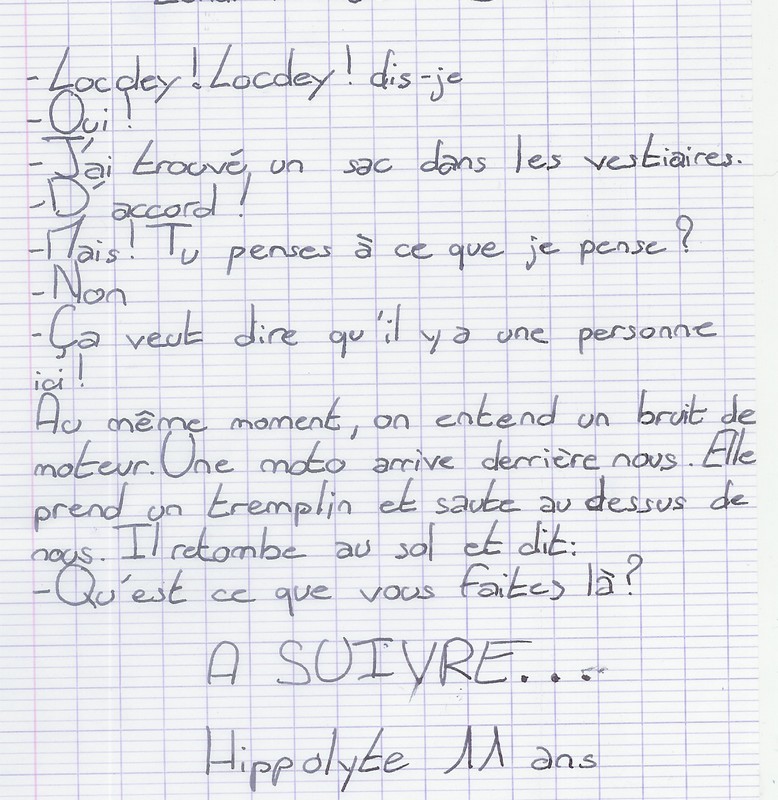 - Locdey ! Locdey ! dis-je
- Oui !
- J'ai trouvé, un sac dans les vestiaires.
- D'accord !
- Mais ! Tu penses à ce que je pense ?
- Non
- Ça veut dire qu'il y a une personne
ici !
Au même moment, on entend un bruit de
moteur. Une moto arrive derrière nous. Elle
prend un tremplin et saute au dessus de
nous. Il retombe au sol et dit :
- Qu'est ce que vous faites là ?
A SUIVRE....
Hippolyte 11 ans